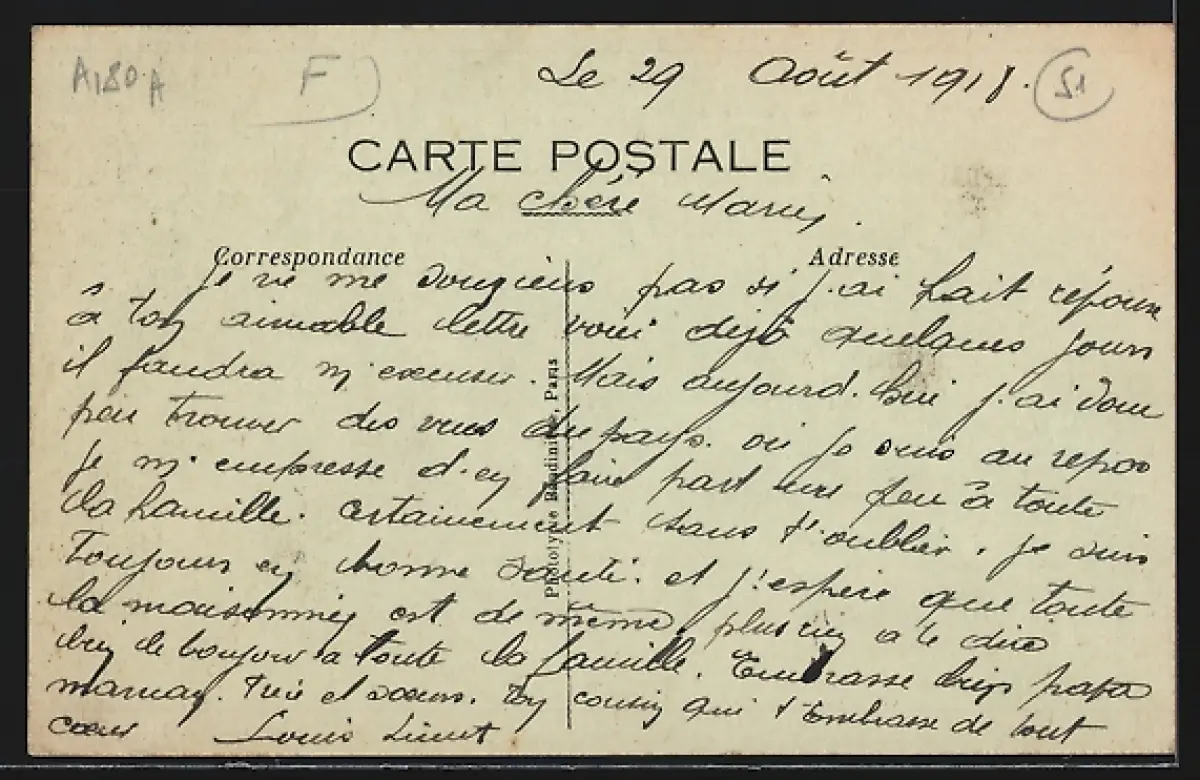 A180 A
F
Le 29 Août 1918.
51
CARTE POSTALE
Ma chère
Correspondance
Adresse
Je ne me pas si j'ai fait réponse
à ton aimable lettre voici dejà quelques jours
il faudra m'excuser. Mais aujourd'hui j'ai donc
peu trouver des vues du pays. où je suis au repos
je m'empresse d'en faire part une feu à toute
la famille. certainement sans t'oublier. je suis
toujours en bonne santé. et j'espère que toute
la maisonnée est de même, plus rien a te dire
bien le bonjour a toute la famille. Embrasse bien papa
maman. frère et soeurs. ton cousin qui t'embrasse de tout
coeur Louis
Phototypie Paris